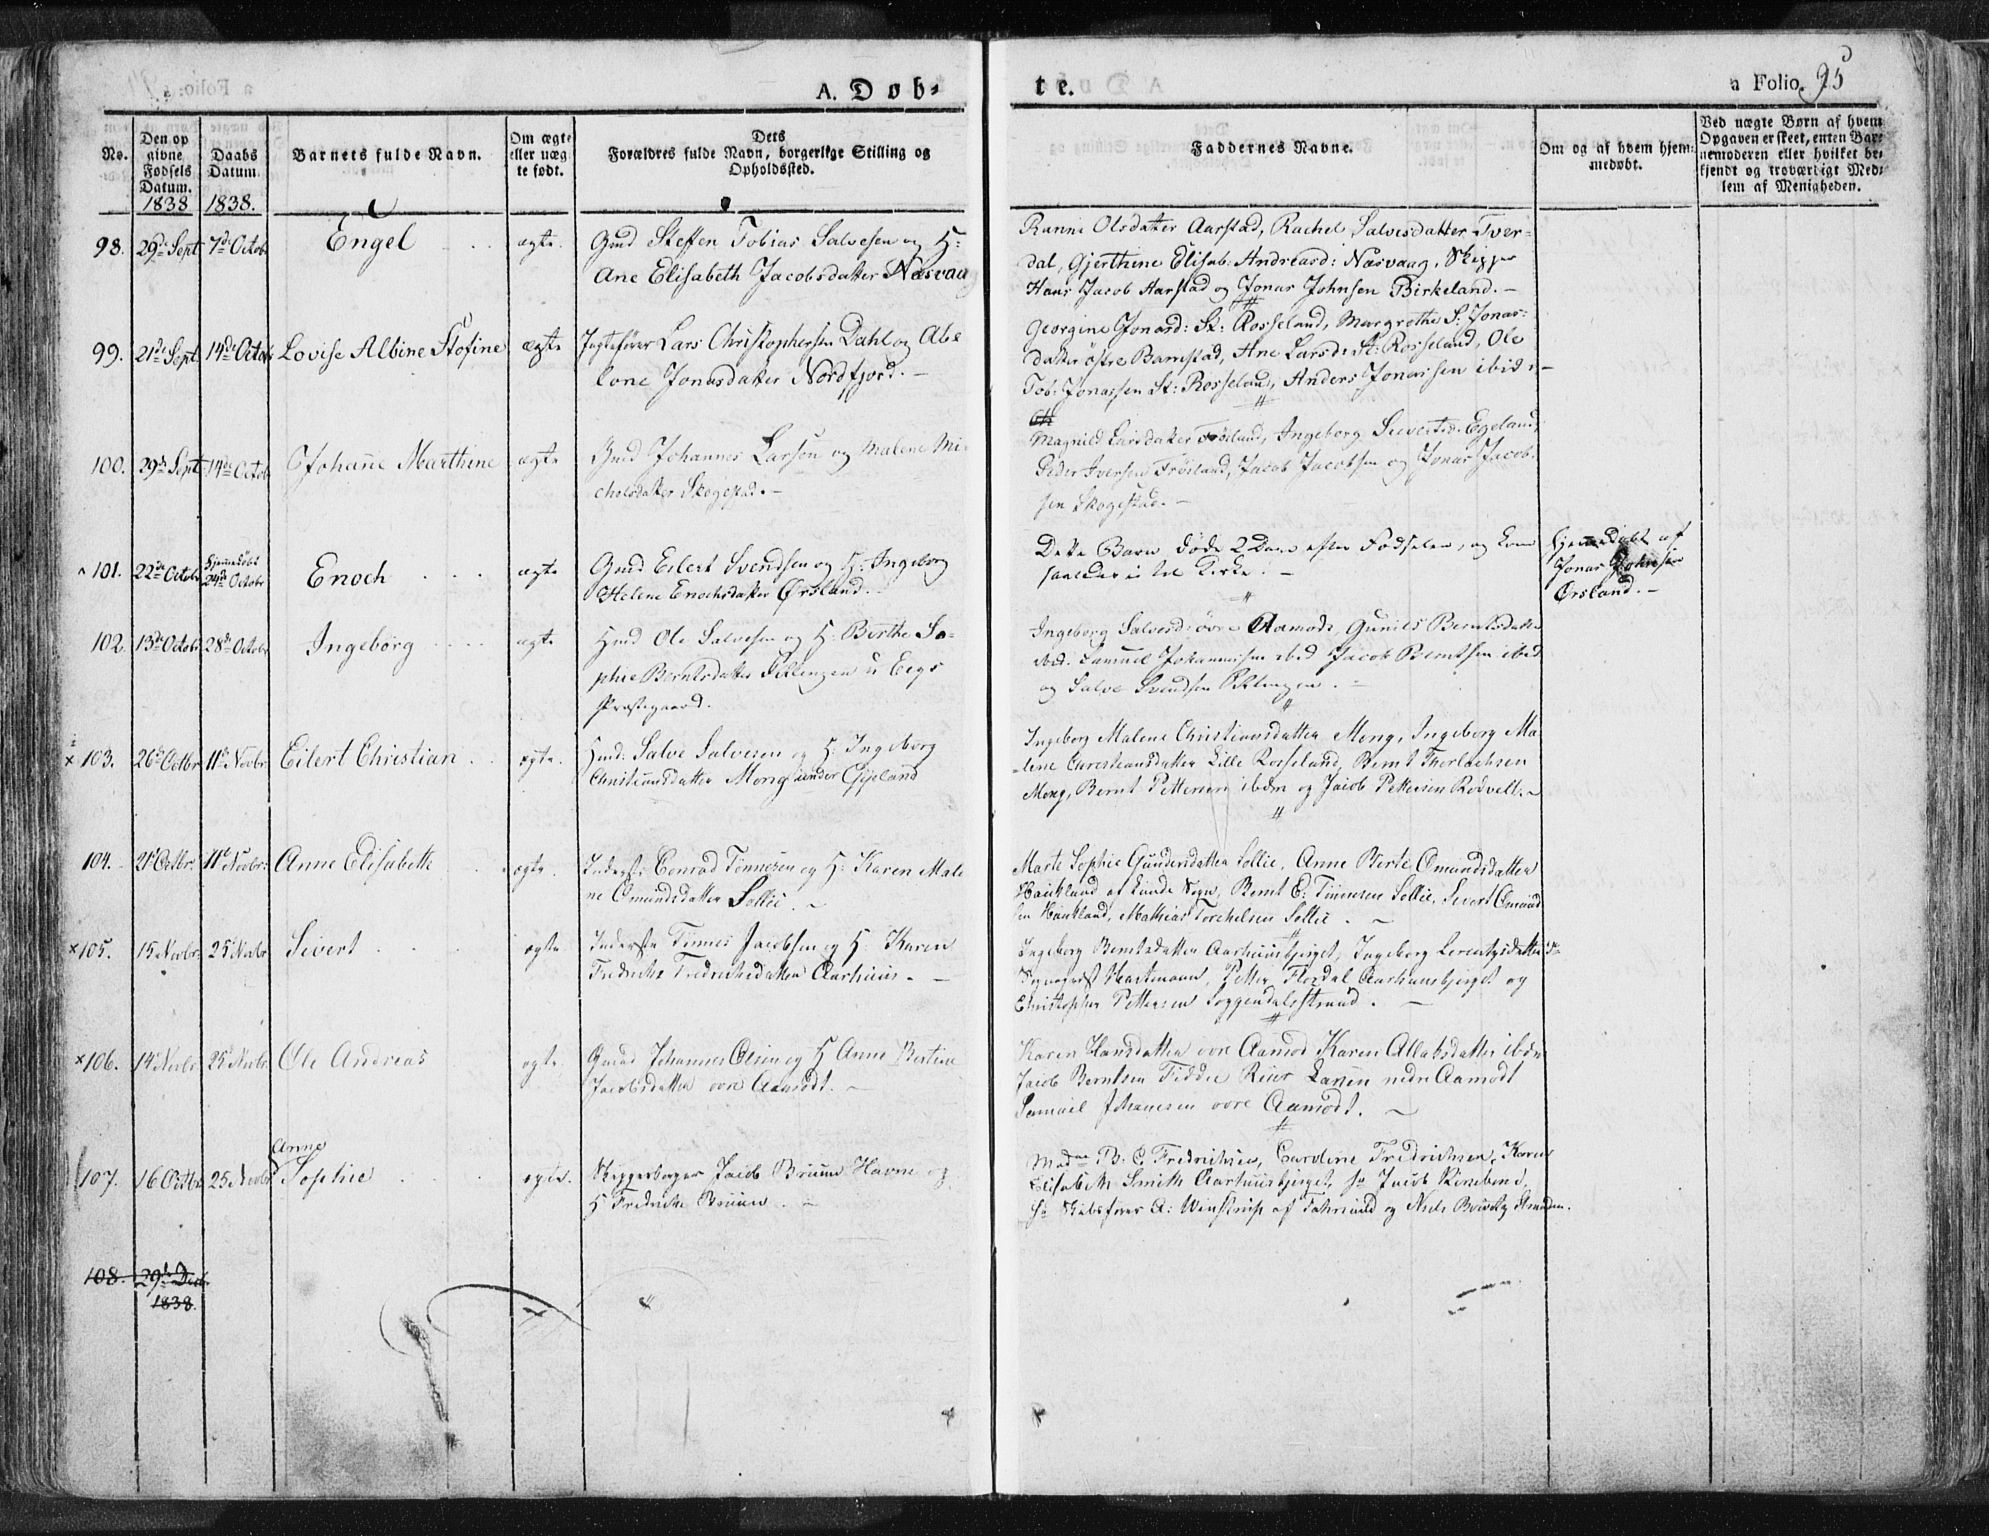 A. Døb-
te.
a Folio. 95
No.
Den op
givne
Fødsels
Datum.
1838
Daabs
Datum.
1838.
Barnets fulde Navn.
Om ægte
eller uæg
te født.
Dets
Forældres fulde Navn, borgerlige Stilling og
Opholdssted.
Faddernes Navne.
Om og af hvem hjem-
medøbt.
Ved uægte Børn af hvem
Opgaven er skeet, enten Bar-
nemoderen eller hvilket be-
kjendt og troværdigt Med-
lem af Menigheden.
98. 29de Sept 7de Octob Engel ægte. Gmd Steffen Tobias Salvesen og H:
Ane Elisabeth Jacobsdatter Næsvaag
Ranni Olsdatter Aarstad, Rachel Salvesdatter Tver-
dal, Gjerthine Elisab: Andreasd: Næsvaag, Skipper
Hans Jacob Aarstad og Jonas Johnsen Birkeland. -
99. 21de Sept 14de Octob Lovise Albine Stofine ægte Jagtefører Lars Christophersen Dahl og Abe
lone Jonasdatter Nordfjord. -
Georgine Jonasd: St: Rosseland, Margrethe S. Jonas-
datter østre Barrestad, Ane Larsd: St: Rosseland, Ole
Tob: Jonassen St: Rosseland, Anders Jonassen ibid: -
100. 29de Sept 14de Octob Johane Marthine ægte Gmd Johannes Larsen og Malene Mi-
chelsdatter Skogestad. -
Magnild Larsdatter Frøisland, Ingeborg Siverts. Egeland,
Peder Iversen Frøisland, Jacob Jacobsen og Jonas Jacob-
sen Skogestad. -
101. 22de Octobr Hjemmedøbt
24de Octobr Enoch ægte Gmd Eilert Svendsen og H: Ingeborg
Helene Enochsdatter Ørsland. -
Dette Barn døde 2 Dage efter Fødselen, og kom
saaledes ei til Kirke. -
hjemmedøbt af
Jonas Johnsen
Ørsland. -
102. 13de Octobr 28de Octobr Ingeborg ægte Hmd Ole Salvesen og H: Berthe So-
phie Berntsdatter Eeg
Præstegaard.
Ingeborg Salvesd: øvre Aamodt, Gunild Berntsdatter
ibid. Samuel Johannesen ibid Jacob Berntsen ibid
og Salve Svendsen
× 103. 26de Octbr 11te Novbr. Eilert Christian ægte. Hmd. Salve Salvesen og H: Ingeborg
Christiansdatter Mong under Gyeland
Ingeborg Malene Christiansdatter Mong, Ingeborg Ma-
lene Christiansdatter Lille Rosseland, Bernt Thorlachsen
Mong, Bernt Pettersen ibdm og Jacob Pettersen Rodvelt. -
104. 21de Octbr. 11te Novbr. Anne Elisabeth ægte. Inderste Conrad Tønnesen og H: Karen Male
ne Omundsdatter Sollie. -
Marte Sophie Gundersdatter Sollie, Anne Berte Omundsdatter
Haukland af Lunde Sogn, Bernt E: Tønnesen Sollie, Sivert Omund
sen Haukland, Mathias Torchelsen Sollie. -
× 105. 15 Novbr. 25de Novbr Sivert ægte Inderste Tønnes Jacobsen og H Karen
Fredricke Fredricksdatter Aarhuus. -
Ingeborg Berntsdatter Aarhuusbjerget, Ingeborg Lorentzdatter
Hartmann, Petter Flordal Aarhuusbjerget og
Christopher Pettersen Soggendalsstrand. -
× 106. 14de Novbr 25de Novbr. Ole Andreas ægte. Gmd Johannes Olsen og H Anne Bertine
Jacobsdatter øvre Aamodt. -
Karen Hansdatter øvre Aamod Karen Allaksdatter ibdm
Jacob Berntsen Fidde Larsen nedre Aamodt
Samuel Johanesen øvre Aamodt. -
107. 16 Octbr 25 Novbr Anne
Sophie ægte. Skipperborger Jacob Bruun Havne og
H Fredricke Bruun. -
Madme B. C. Fredrichsen, Caroline Fredrichsen, Karen
Elisabeth Smith Aarhuusbjerget, Hr Jacob
Hr Skibsfører A: Winstrup af Farsund og Niels Stranden.
108. 29de Decb.
1838.